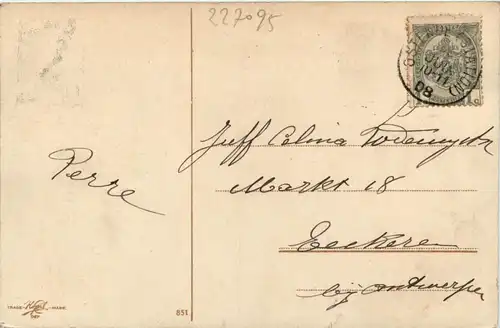 227095
08
Juff Celina
Perre
Markt 18
Eeckeren
bij Antwerpen
TRADE MARK
851